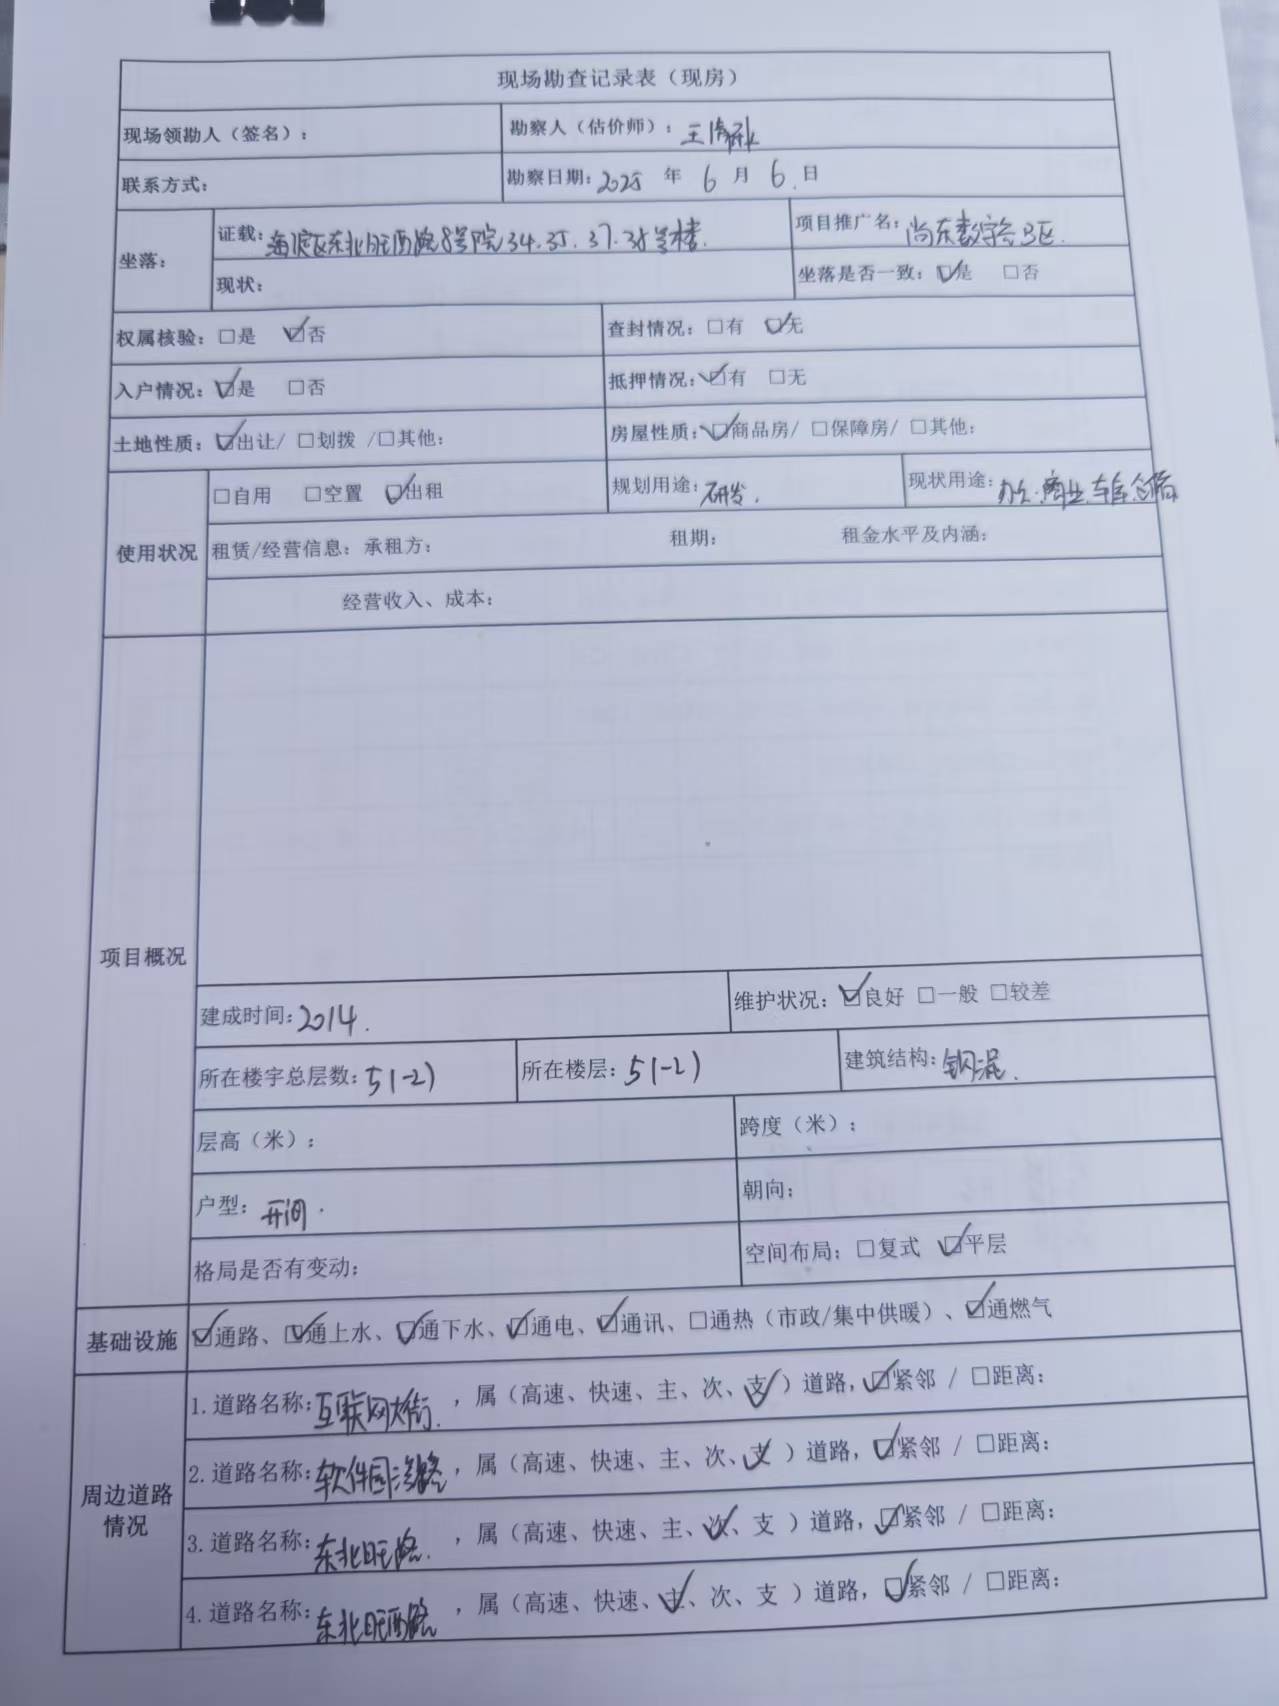 现场勘查记录表（现房）
现场领勘人（签名）： 勘察人（估价师）：王
联系方式： 勘察日期：2025 年 6 月 6 日
坐落： 证载：海淀区东北旺西路8号院34.35.37.38号楼. 项目推广名：尚东数字谷B区.
现状： 坐落是否一致：☑是 □否
权属核验：□是 ☑否 查封情况：□有 ☑无
入户情况：☑是 □否 抵押情况：☑有 □无
土地性质：☑出让/ □划拨 /□其他： 房屋性质：☑商品房/ □保障房/ □其他：
使用状况 □自用 □空置 ☑出租 规划用途：研发. 现状用途：办公.商业.车库.仓储
租赁/经营信息：承租方： 租期： 租金水平及内涵：
经营收入、成本：
项目概况
建成时间：2014. 维护状况：☑良好 □一般 □较差
所在楼宇总层数：5(-2) 所在楼层：5(-2) 建筑结构：钢混.
层高（米）： 跨度（米）：
户型：开间. 朝向：
格局是否有变动： 空间布局：□复式 ☑平层
基础设施 ☑通路、☑通上水、☑通下水、☑通电、☑通讯、□通热（市政/集中供暖）、☑通燃气
周边道路情况 1.道路名称：互联网大街. ，属（高速、快速、主、次、支✓）道路，☑紧邻 / □距离：
2.道路名称：软件园路，属（高速、快速、主、次、支✓）道路，☑紧邻 / □距离：
3.道路名称：东北旺路. ，属（高速、快速、主、次✓、支）道路，☑紧邻 / □距离：
4.道路名称：东北旺西路 ，属（高速、快速、主✓、次、支）道路，☑紧邻 / □距离：